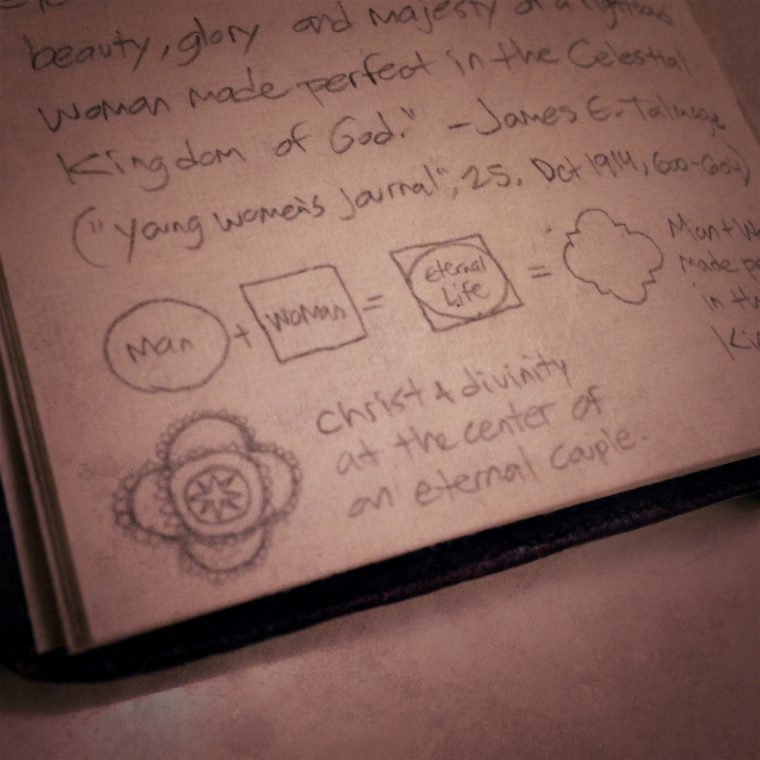 beauty, glory and majesty of a righteous
woman made perfect in the Celestial
Kingdom of God." - James E. Talmage
("Young women's Journal", 25, Oct 1914, 600-604)
Man + Woman = eternal Life =
made
in
Christ & divinity
at the center of
an eternal couple.